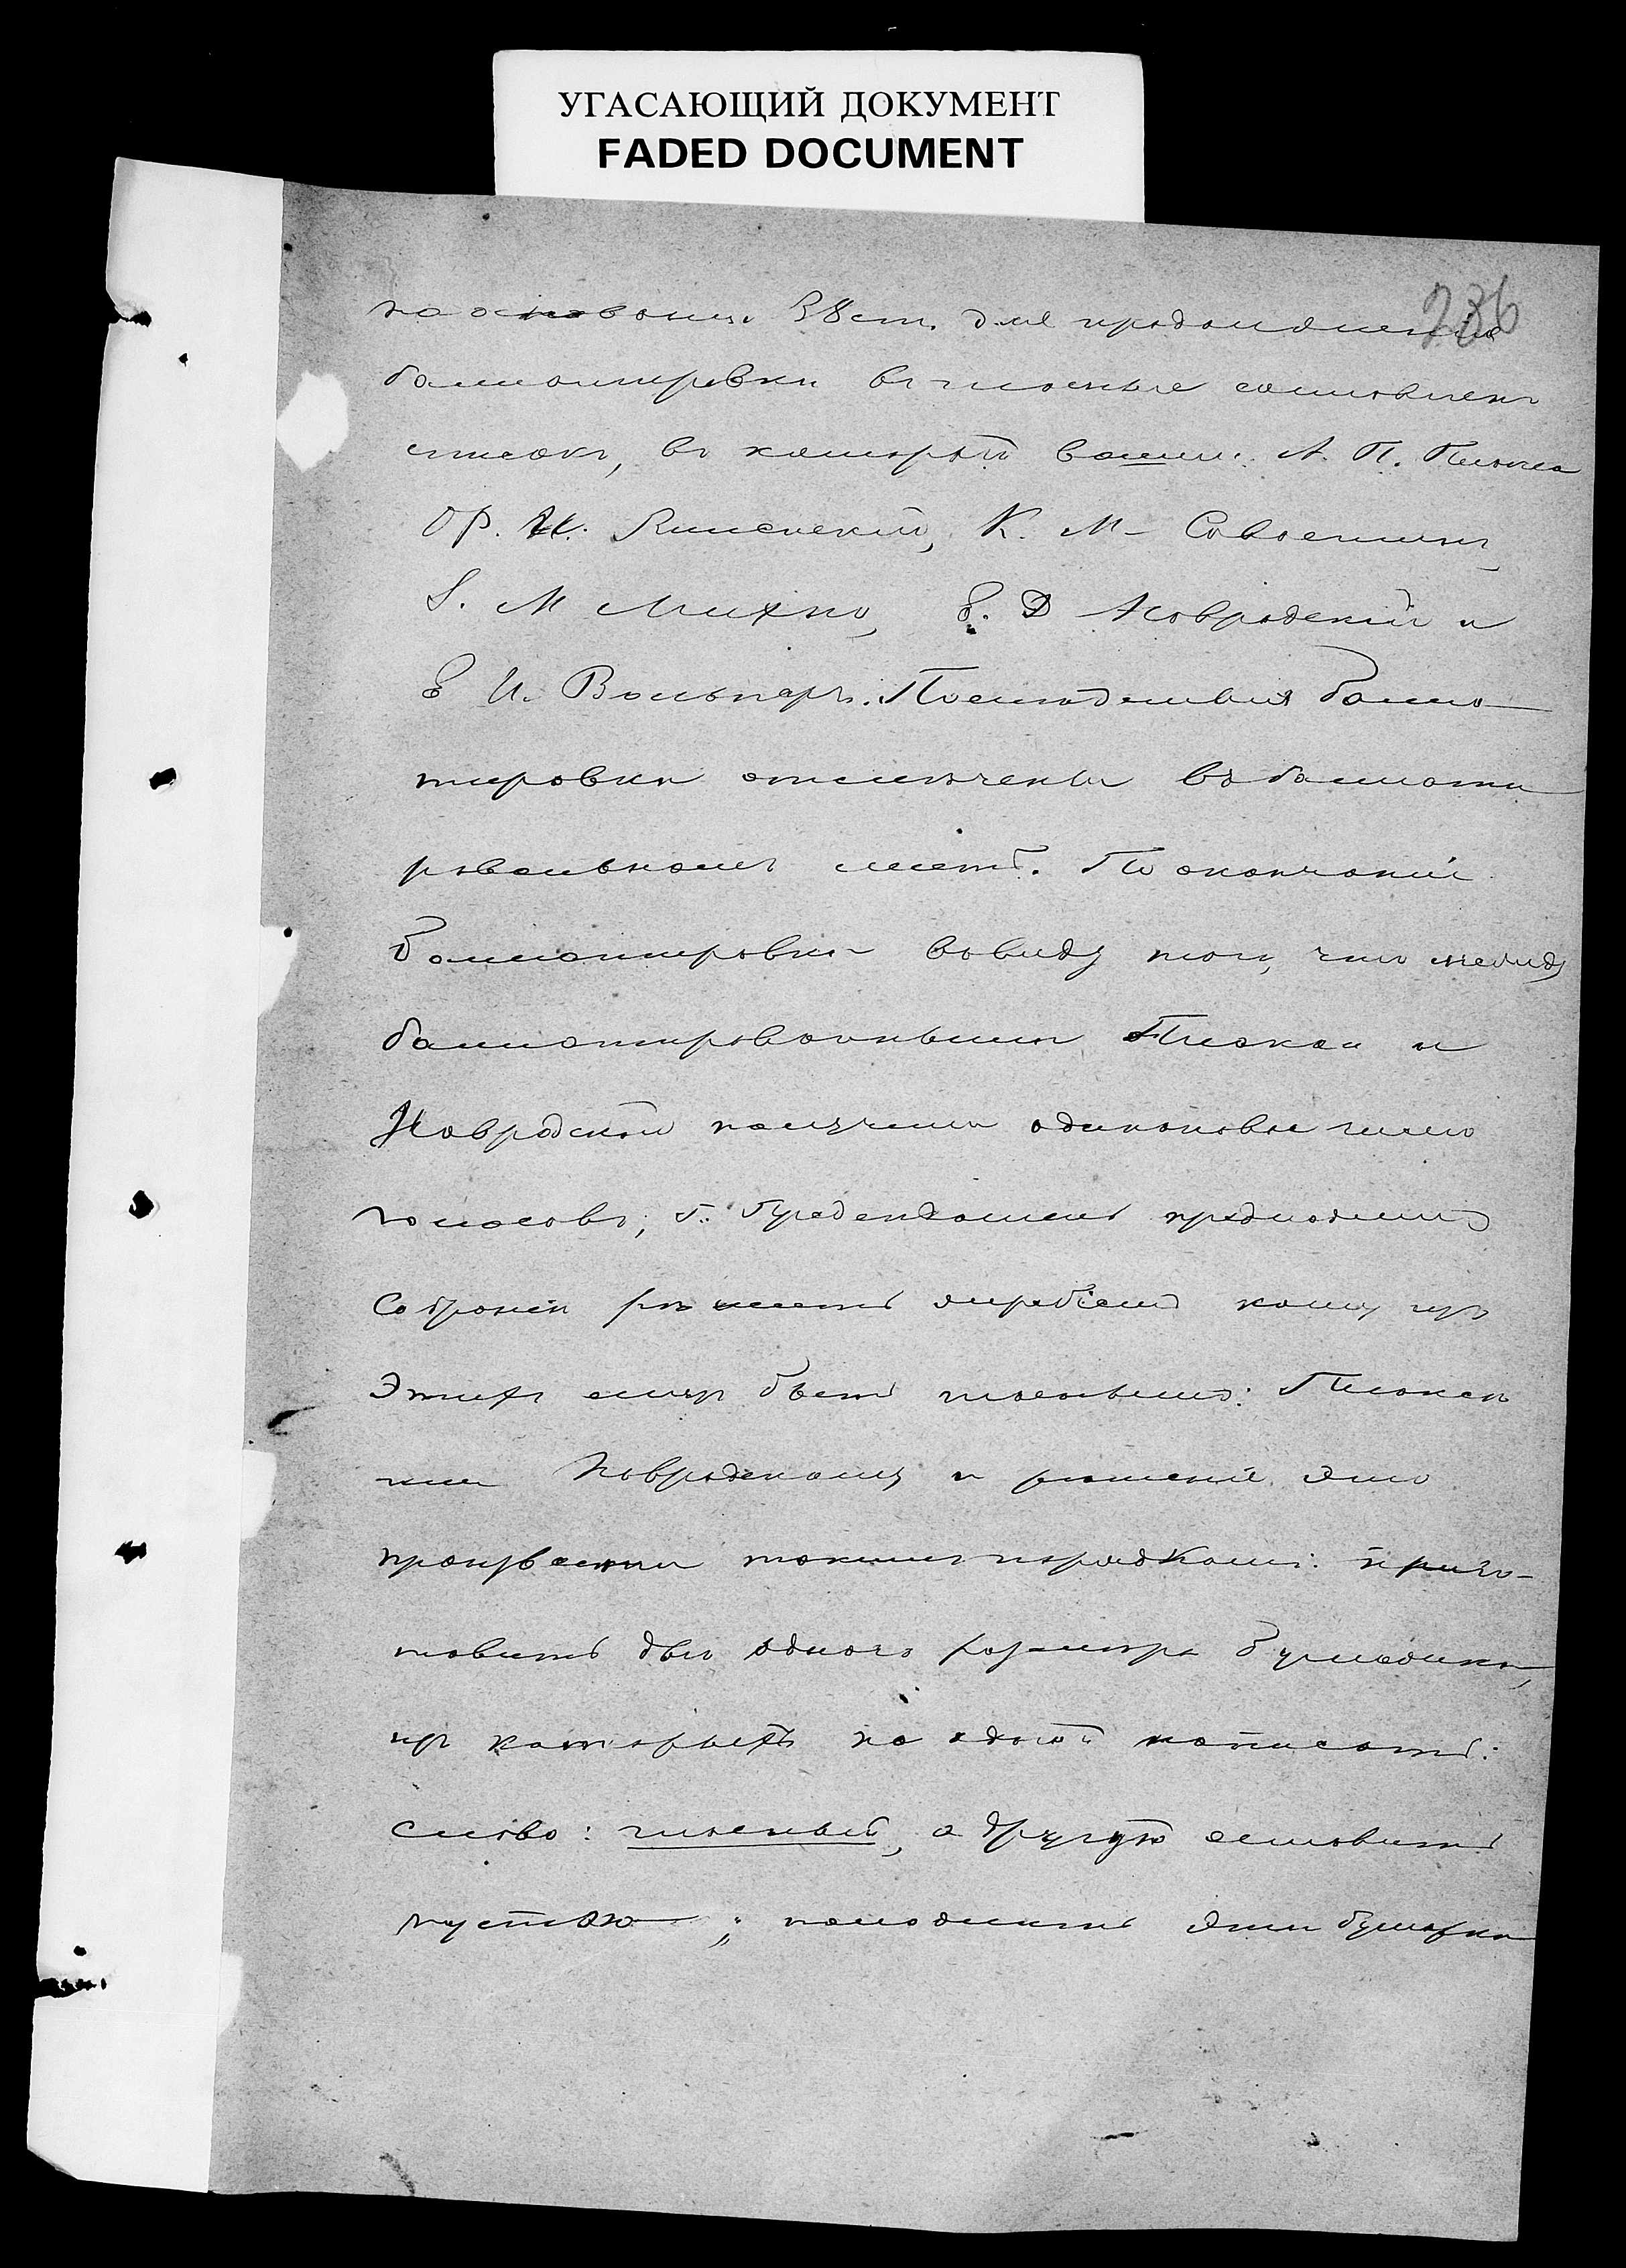 УГАСАЮЩИЙ ДОКУМЕНТ
FADED DOCUMENT
236
на основаніи 38 ст. для продолженія
баллотировки въ гласные составленъ
списокъ, въ который вошли: А. П.
К. М.
I. М. Михно, Е. Д. Навродскій и
Е И. Вольнаръ. Послѣдствія балло
тировки отмѣчены въ баллоти
ровальномъ листѣ. По окончаніи
баллотировки ввиду того, что между
баллотированными Плюхой и
Навродскій получили одинаковое число
голосовъ, г. Предсѣдатель предложилъ
Собранію рѣшить жребіемъ кому изъ
этихъ лицъ быть гласнымъ:
или Навродскому и рѣшеніе это
произвести такимъ порядкомъ: приго-
товить двѣ одного размѣра бумажки,
изъ которыхъ на одной написать:
слово: гласный, а другую оставить
пустою; положить эти бумажки